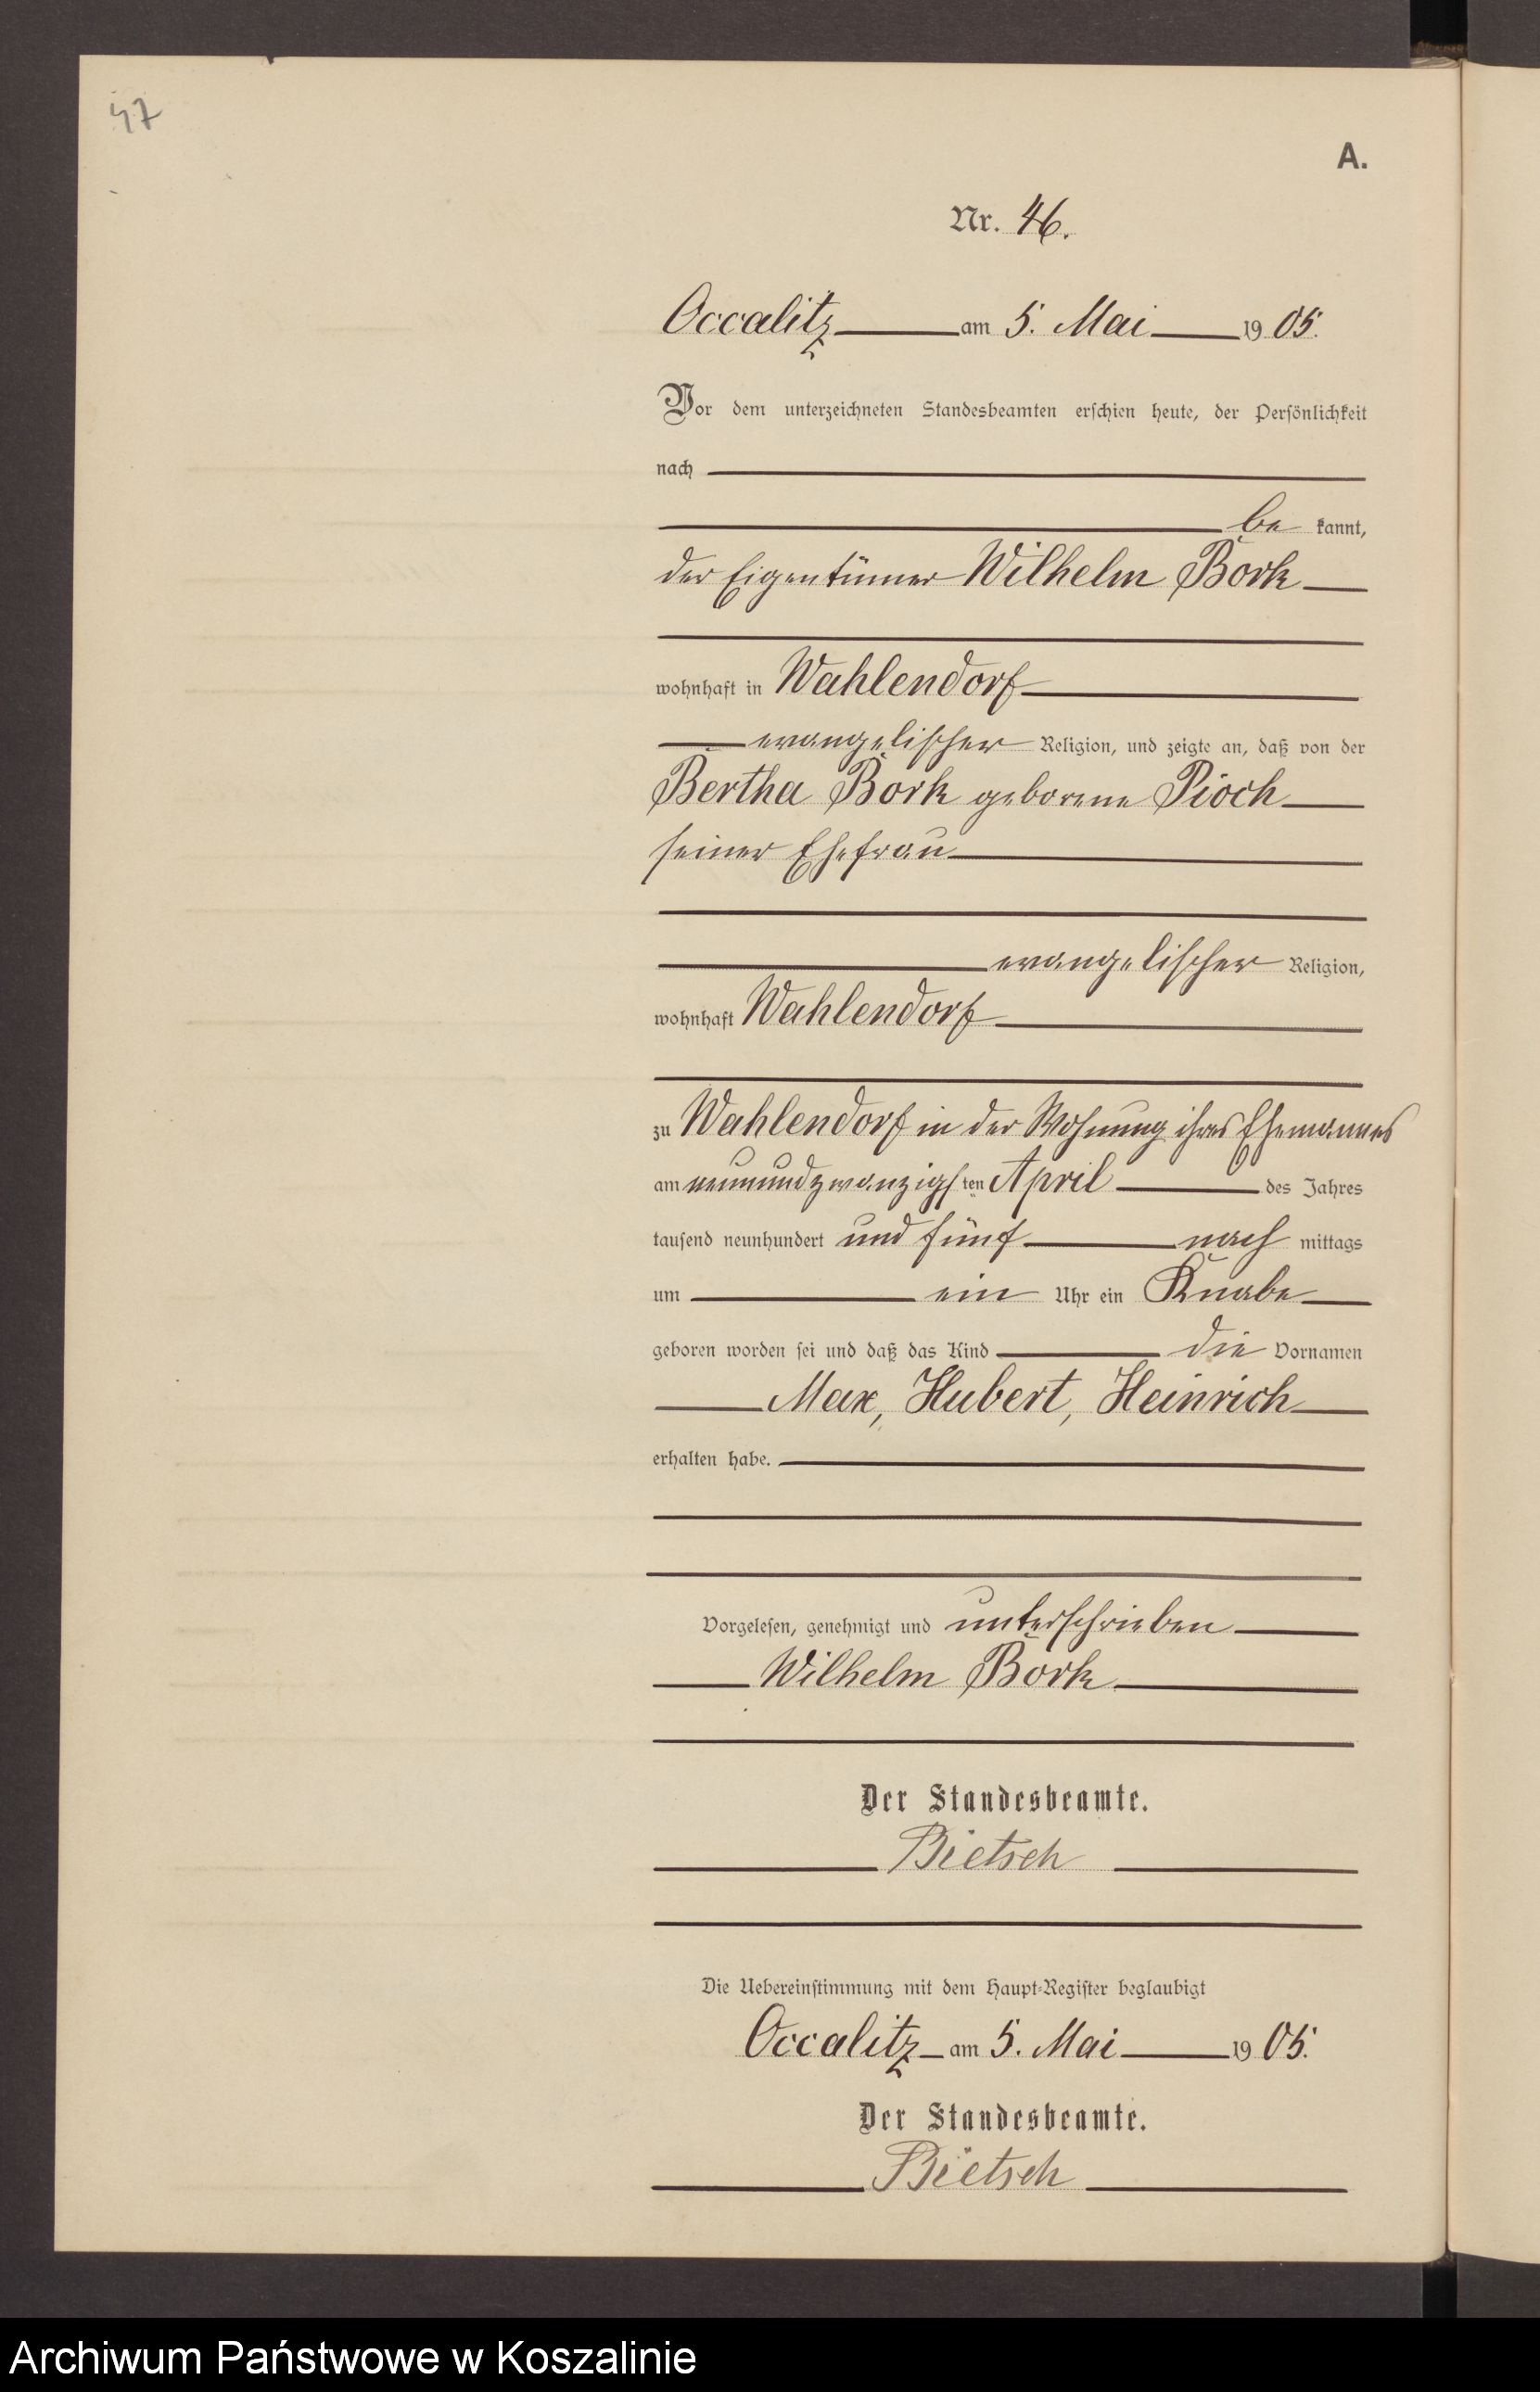 47
A.
Nr. 46.
Occalitz am 5. Mai 1905.
Vor dem unterzeichneten Standesbeamten erschien heute, der Persönlichkeit
nach
be kannt,
der Eigentümer Wilhelm Bork
wohnhaft in Wahlendorf
evangelischer Religion, und zeigte an, daß von der
Bertha Bork geborene Pioch
seiner Ehefrau
evangelischer Religion,
wohnhaft Wahlendorf
zu Wahlendorf in der Wohnung ihres Ehemannes
am neunundzwanzigsten April des Jahres
tausend neunhundert und fünf nach mittags
um ein Uhr ein Knabe
geboren worden sei und daß das Kind die Vornamen
Max, Hubert, Heinrich
erhalten habe.
Vorgelesen, genehmigt und unterschrieben
Wilhelm Bork
Der Standesbeamte.
Bietsch
Die Uebereinstimmung mit dem Haupt-Register beglaubigt
Occalitz am 5. Mai 1905.
Der Standesbeamte.
Bietsch
Archiwum Państwowe w Koszalinie